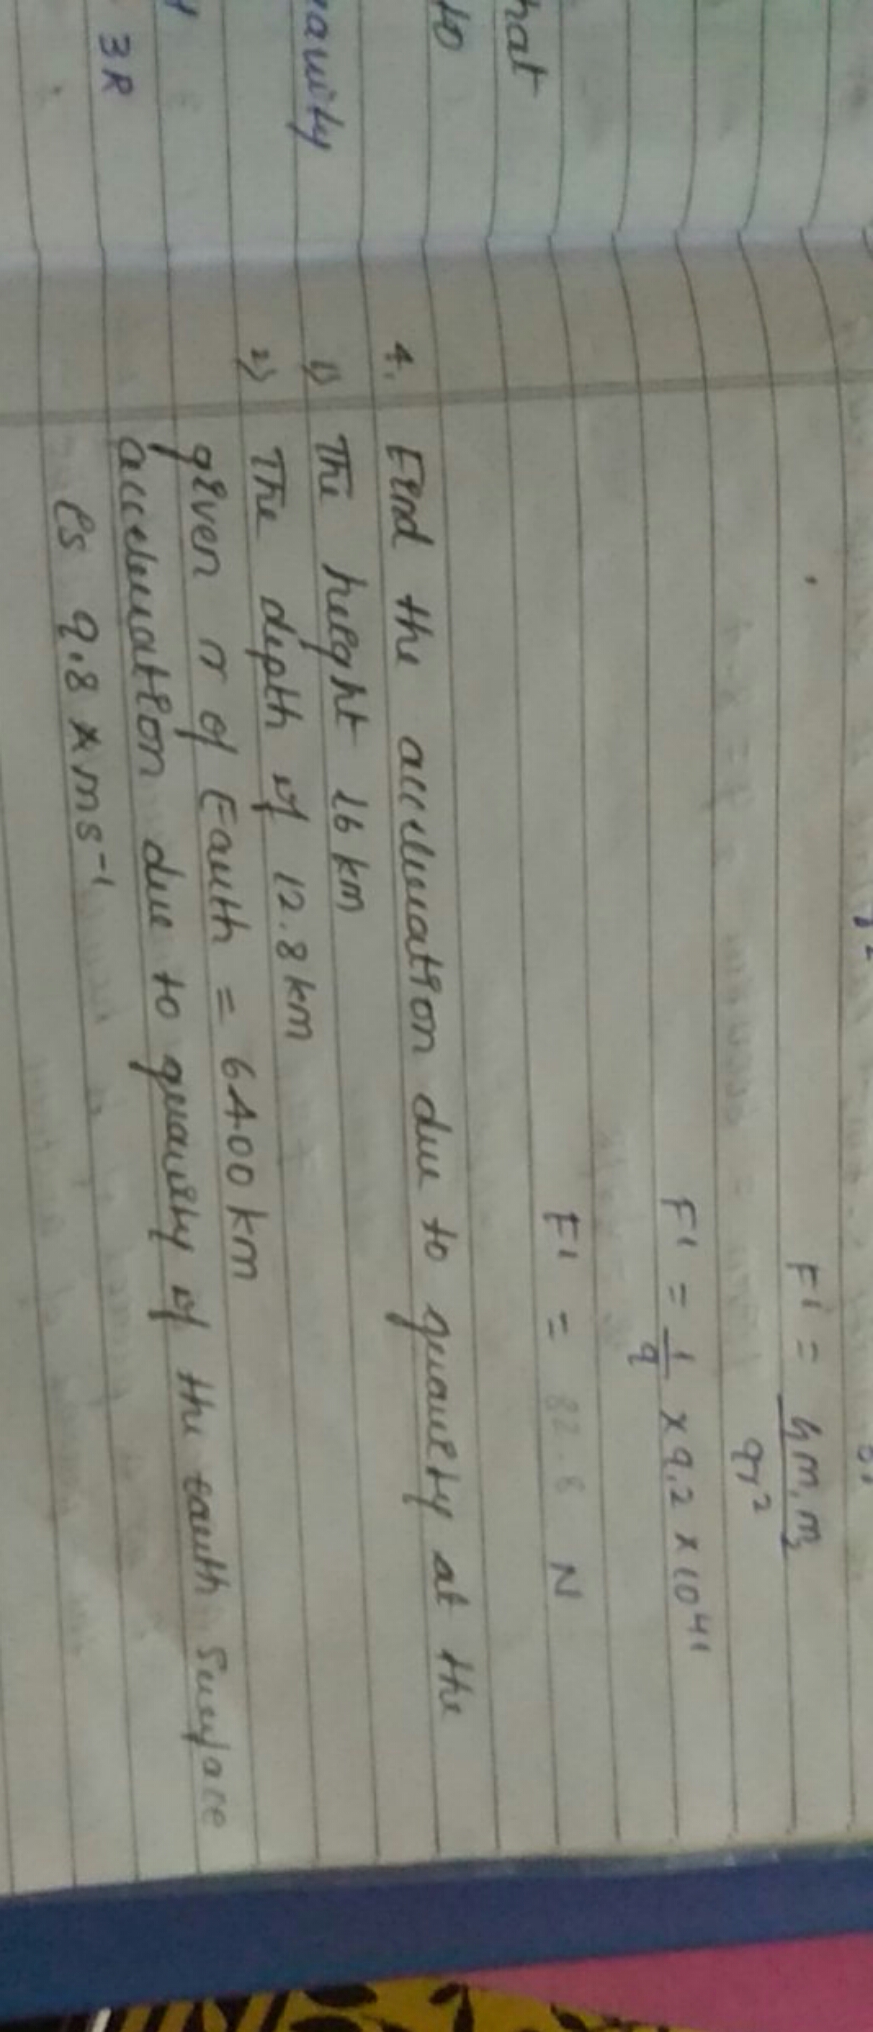 hat
to
3R
F' = Gm₁m₂ / 9r²
F' = 1/9 × 9.2 × 10⁴¹
F' = N
4. Find the acceleration due to gravity at the
1) The height 16 km
2) The depth of 12.8 km
given r of Earth = 6400 km
acceleration due to gravity of the earth surface
is 9.8 × ms⁻¹